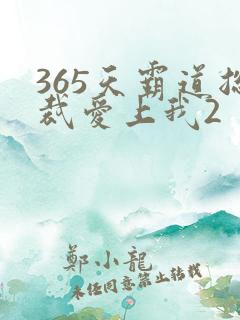 365天霸道总
裁爱上我2
鄭小龍
未任同意禁止转载